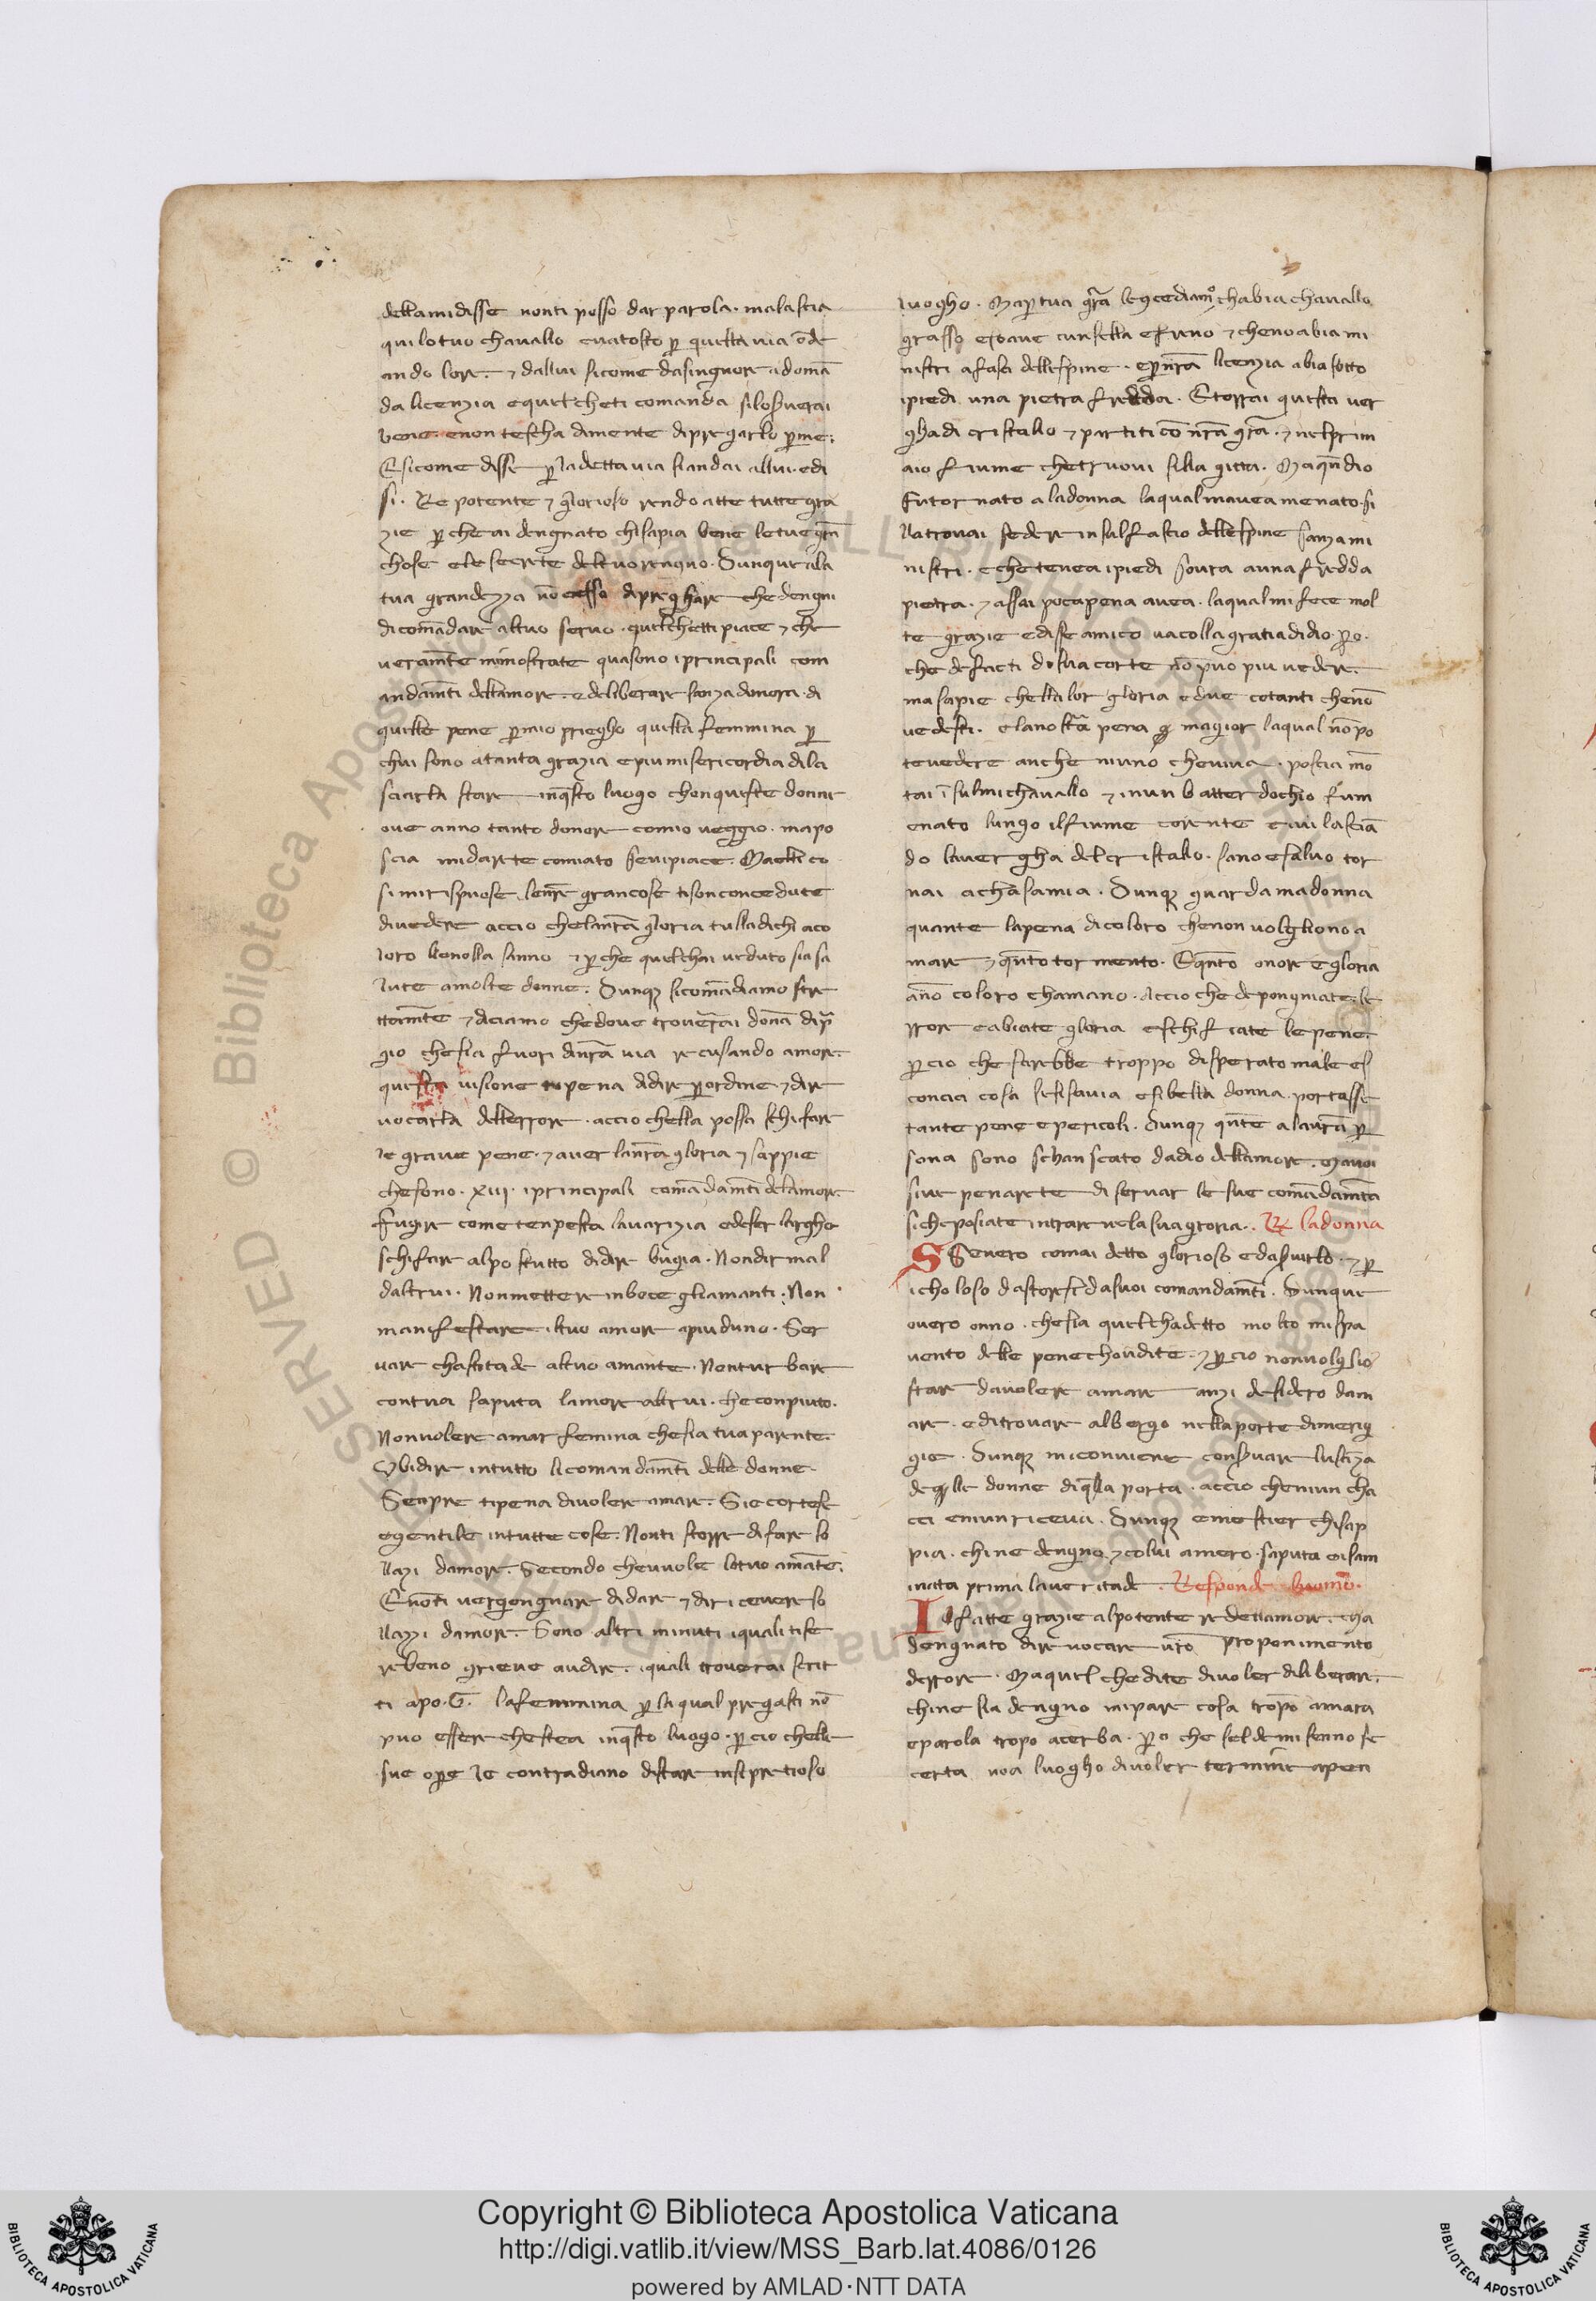 dellamidisse nonti posso dar parola. malascia
qui lotuo chauallo euatosto p̱ quella uia ōde
ando lore. ⁊ dallui sicome dasingnore adomā
da licenzia equelcheti comanda siloseruerai
bene. enon tescha damente dipregarlo p̱me.
Esicome disse p̱ ladetta uia siandai allui. edi
si. Re potente ⁊ glorioso rendo atte tutte gra
zie p̱ cherai dengnato chisapia bene letue grā
chose ele secrete deltuo rengno. Dunque ala
tua grandezza nō cesso dipreghare che dengni
dicomādare altuo seruo. quelchetti piace ⁊ che
ueramēte mimostrate quasono iprincipali com
andamēti dellamore. edeliberare sanza dimora. di
quelle pene p̱mio priegho quella femmina p̱
chui sono atanta grazia epiumisericordia dila
sciarla stare inqsto luogo chonqueste donne
oue anno tanto donore comio ueggio. mapo
scia midarete comiato seuipiace. Maelli co
simirispuose. lenr̄e grancose tisonconcedute
diuedere accio chelanr̄a gloria tulladichi aco
loro chenolla sanno ⁊ p̱che quelchai ueduto siasa
lute amolte donne. Dunqꝫ sicomādiamo stre
ttamēte ⁊ diciamo chedoue trouerrai donā dip̱
gio chesia fuori dinr̄a uia recusando amore.
questa uisione tupena didire p̱ordine ⁊ dire
uocarla dellerrore. accio chella possa schifare
le graue pene. ⁊ auer lanr̄a gloria ⁊ sappie
chesono. xiij. iprincipali comādamēti delamore
Fugire come tenpesta lauarizia edesser largho
schifare alpostutto didire bugia. Nondir mal
daltrui. Nonmettere inboce gliamanti. Non
manifestare iltuo amore apiuduno. Ser
uare chastitade altuo amante. Nonturbare
contua saputa lamore altrui. che conpiuto.
Nonuolere amar femina chesia tua parente.
Ubidire intutto licomandamēti delle donne.
Senpre tipena diuolere amare. Sie cortese
egentile intutte cose. Nonti storre difare so
llazi damore. Secondo cheuuole lotuo amāte.
Enōti uergongnare didare ⁊ diriceuere so
llazzi damore. Sono altri minuti iquali tise
rebeno grieue audire. iquali trouerai scrit
ti apo. G. lafemmina p̱ laqual pregasti nō
puo esser chestea inqsto luogo. p̱cio chelle
sue op̱e le contradiano distare insi pretioso
luogho. Map̱ tua grā le cōcediamo chabia chauallo
grasso esoaue consella efreno ⁊ chenoabia mi
nistri afasci dellespine. ep̱ nr̄a licenzia abia sotto
ipiedi una pietra fredda. Etorrai questa uer
ghadi cristallo ⁊ partiti cō nr̄a grā. ⁊ nelprim
aio fiume chetruoui silla gitta. Maquādio
futornato aladonna laqualmauea menato. si
llatrouai sedere insulfascio dellespine sanzami
nistri. eche tenea ipiedi soura auna fredda
pietra. ⁊ assai pocapena auea. laqual mi fece mol
te grazie edisse amico uacolla gratia didio. p̱o.
che defacti disua corte nō puo piu uedere.
ma sapie chella lor gloria e due cotanti chenō
uedesti. elanostra pena e magior laqual nō po
teuedere anche niuno cheuiua. poscia mō
tai īsulmichauallo ⁊ inun batter dochio fum
enato lungo ilfiume corente eiui lasciā
do lauergha del cristallo. sano esaluo tor
nai achasamia. Dunqꝫ guarda madonna
quante lapena dicoloro chenon uolgliono a
mare ⁊ quāto tormento. Equāto onore egloria
āno coloro chamano. Accio che deponguiate le
rrore eabiate gloria eschifiate lepene.
p̱cio che sarebbe troppo disperato male es
concia cosa sesisauia esibella donna. portasse
tante pene epericoli. Dunqꝫ quāte alaur̄a p̱
sona sono schanscato dadio dellamore. Mauoi
siue penarete di seruar le sue comādamēta
sicheposiate intrare nela sua groria. R̷ ladonna
SSeuero comai detto glorioso edaseruirlo. ⁊ p̱
icholoso dastorsi dasuoi comandamēti. Dunque
ouero onno. chesia quelchadetto molto mispa
uento delle pene choudite. ⁊ p̱cio nonuolglio
star dauolere amare anzi desidero dam
are. editrouare albergo nellaporte dimerig
gie. Dunqꝫ miconuiene conseruare lusanza
dequelle donne diqlla porta. accio cheniun cha
cci eniun riceua. Dunqꝫ emestier chisap
pia. chine dengno ⁊ colui amero. saputa eisam
inata prima laueritade. Responde luomo.
Io fatte grazie alpotente re dellamore. cha
dengnato direuocare uro proponimento
derrore. Maquel che dite diuoler diliberare.
chine sia dengno mipare cosa tropo amara
eparola tropo acerba. p̱o che seldemisenno se
certa noa luogho diuoler termine apen
Copyright © Biblioteca Apostolica Vaticana
http://digi.vatlib.it/view/MSS_Barb.lat.4086/0126
powered by AMLAD·NTT DATA
BIBLIOTECA APOSTOLICA VATICANA
BIBLIOTECA APOSTOLICA VATICANA